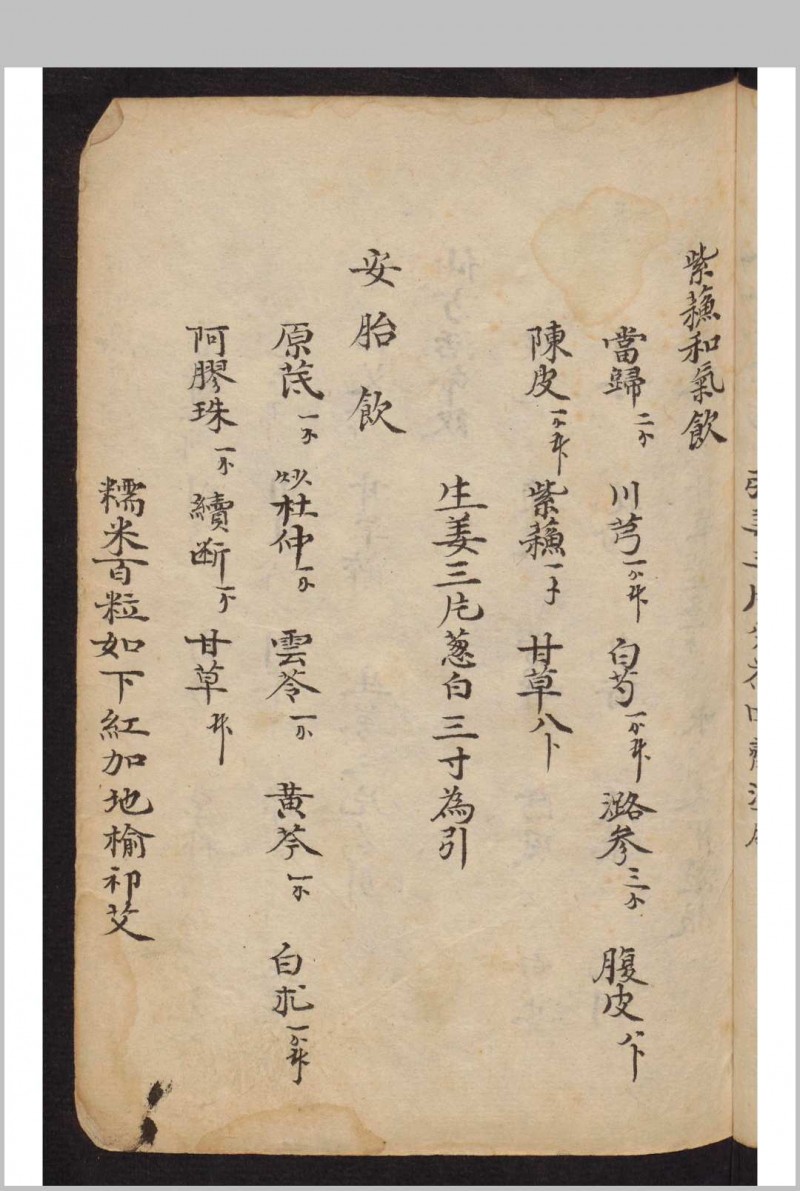 紫蘓和氣飲
當歸二个 川芎一个半 白芍一个半 潞參三个 腹皮八卜
陳皮一个半 紫蘓一个 甘草八卜
生姜三片葱白三寸為引
安胎飲
原茋一个 炒杜仲一个 雲苓一个 黄芩一个 白朮一个半
阿膠珠一个 續断一个 甘草半
糯米百粒如下紅加地榆祁艾